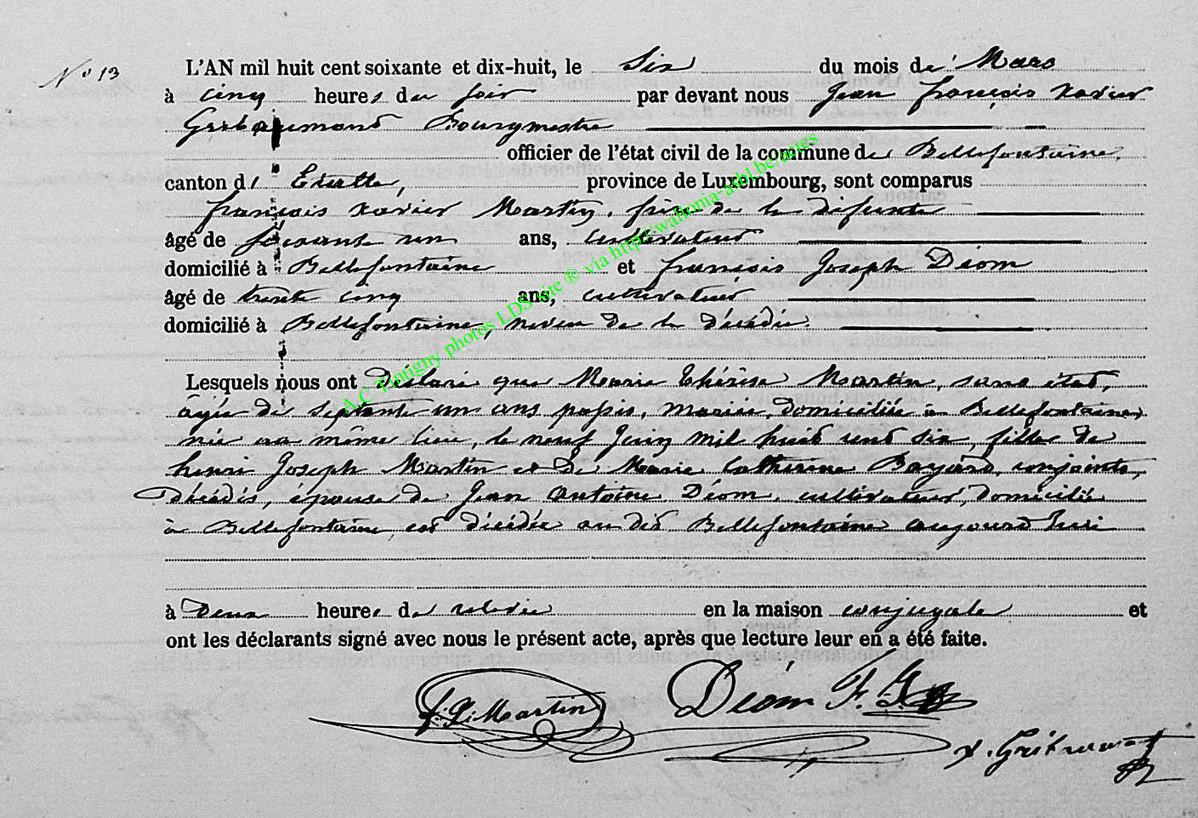 N° 13
L'AN mil huit cent soixante et dix-huit, le Six du mois de Mars
à cinq heures du soir par devant nous Jean françois xavier
Bourgmestre
officier de l'état civil de la commune de Bellefontaine.
canton d' Etalle, province de Luxembourg, sont comparus
françois xavier Martin, frère de la défunte
âgé de soixante un ans, cultivateur
domicilié à Bellefontaine et françois Joseph Déom
âgé de trente cinq ans, cultivateur
domicilié à Bellefontaine, neveu de la décédée.
Lesquels nous ont déclaré que Marie Thérèse Martin, sans état,
âgée de septante un ans passés, mariée, domiciliée à Bellefontaine,
née au même lieu, le neuf Juin mil huit cent six, fille de
henri Joseph Martin et de Marie Catherine Bayard, conjoints,
Décédés, épouse de Jean Antoine Déom, cultivateur, domicilié
à Bellefontaine, est décédée au dit Bellefontaine aujourd'hui
à Deux heures de relevée en la maison conjugale et
ont les déclarants signé avec nous le présent acte, après que lecture leur en a été faite.
Martin Déom F. J.
A.C Tintigny photos LDS site ® via http://wallonia-asbl.be/actes